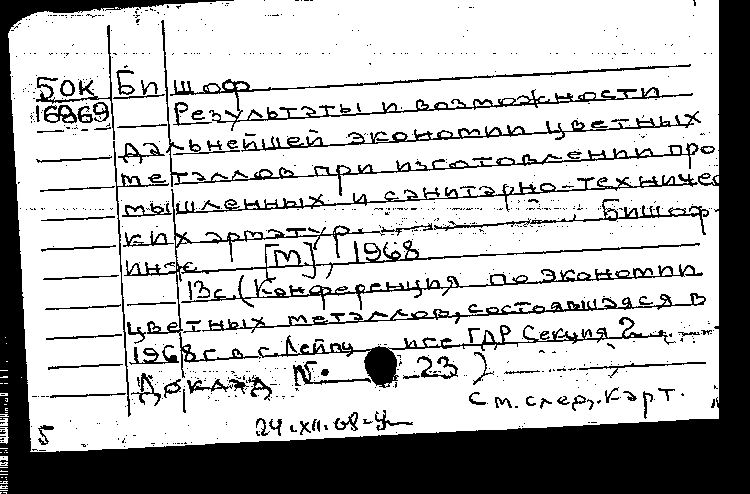 50К Бишоф
16969 Результаты и возможности
дальнейшей экономии цветных
металлов при изготовлении про
мышленных и санитарно-техничес
ких арматур. Бишоф
инж. [М.], 1968
13с. (Конференция по экономии
цветных металлов, состоявшаяся в
1968г в г. Лейпц иге ГДР Секция 2
Доклад N. 23)
См. след. карт.
5 24.XII.68